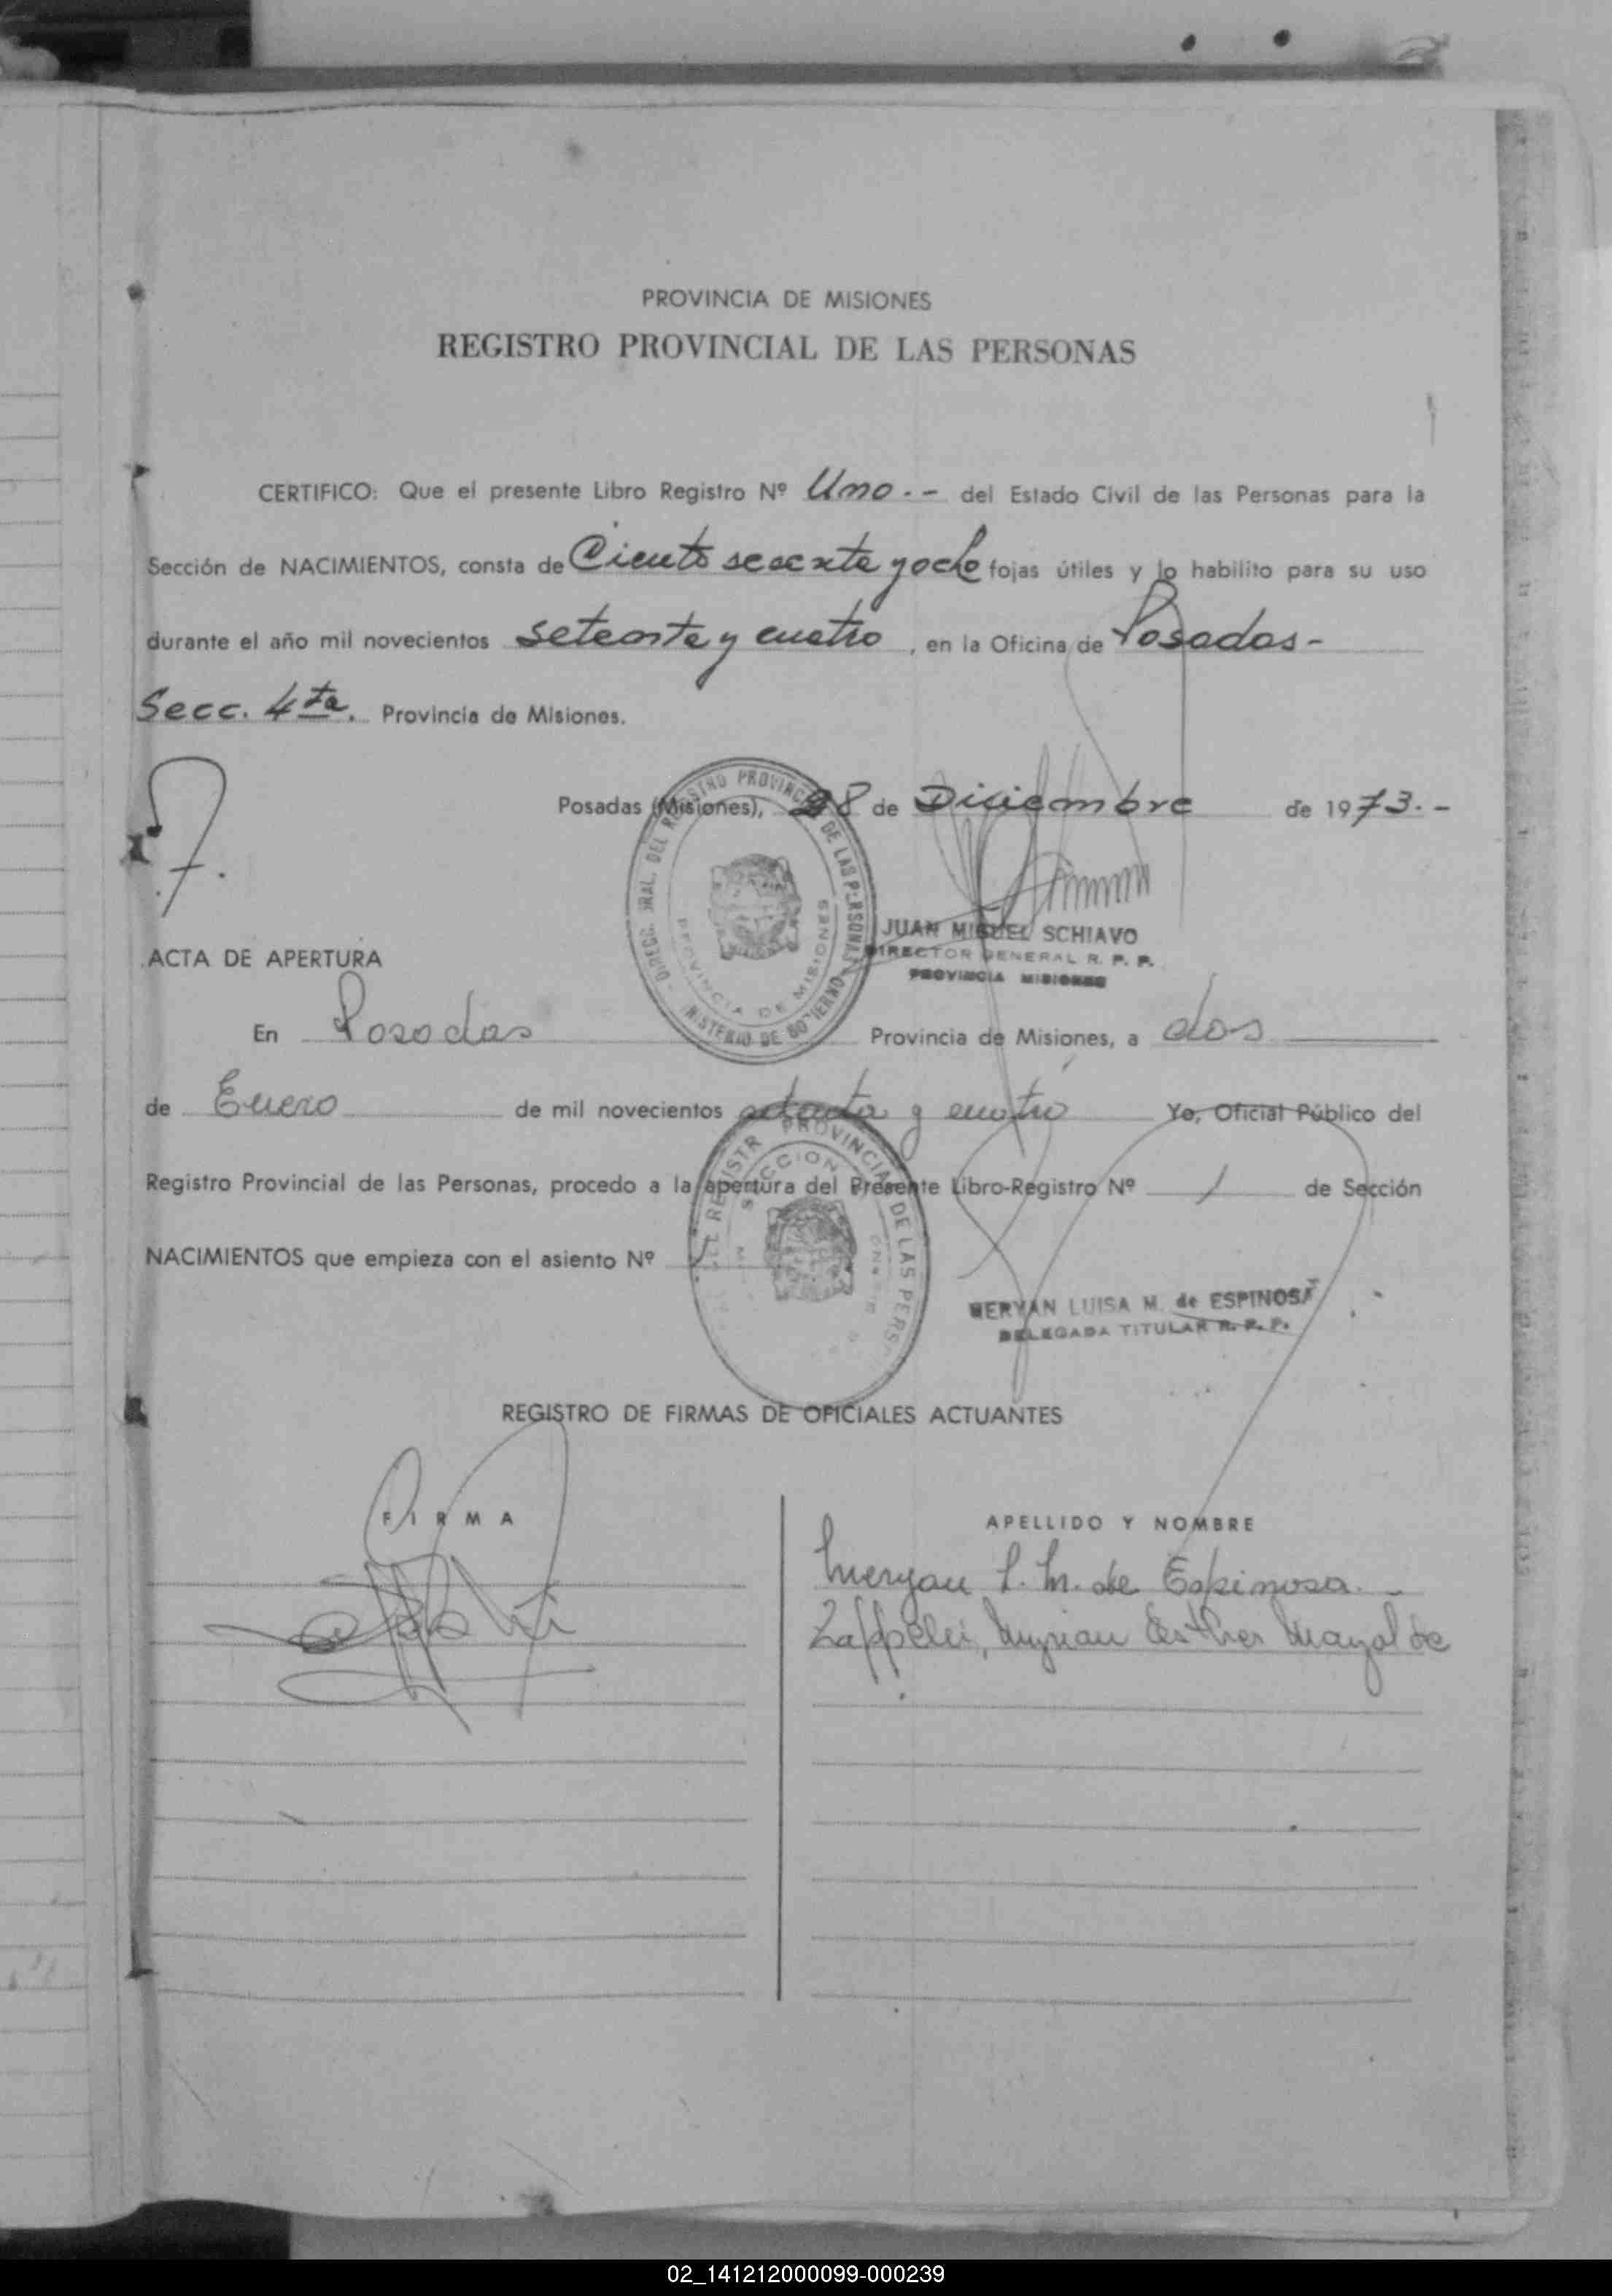 PROVINCIA DE MISIONES
REGISTRO PROVINCIAL DE LAS PERSONAS
CERTIFICO: Que el presente Libro Registro Nº Uno.- del Estado Civil de las Personas para la
Sección de NACIMIENTOS, consta de Ciento sesenta y ocho fojas útiles y lo habilito para su uso
durante el año mil novecientos setenta y cuatro, en la Oficina de Posadas-
Secc. 4ta. Provincia de Misiones.
Posadas (Misiones), 28 de Diciembre de 1973.-
DIREC. GRAL. DEL REGISTRO PROVINCIAL DE LAS PERSONAS
PROVINCIA DE MISIONES
MINISTERIO DE GOBIERNO
JUAN MIGUEL SCHIAVO
DIRECTOR GENERAL R. P. P.
PROVINCIA MISIONES
ACTA DE APERTURA
En Posadas Provincia de Misiones, a dos
de Enero de mil novecientos setenta y cuatro Yo, Oficial Público del
Registro Provincial de las Personas, procedo a la apertura del Presente Libro-Registro Nº 1 de Sección
NACIMIENTOS que empieza con el asiento Nº 1
REGISTR PROVINCIAL DE LAS PERS
SECCION
MERYAN LUISA M. de ESPINOSA
DELEGADA TITULAR R. P. P.
REGISTRO DE FIRMAS DE OFICIALES ACTUANTES
FIRMA APELLIDO Y NOMBRE
Meryan L. M. de Espinosa.-
Zappelli, Myrian Esther Mayol de
02_141212000099-000239